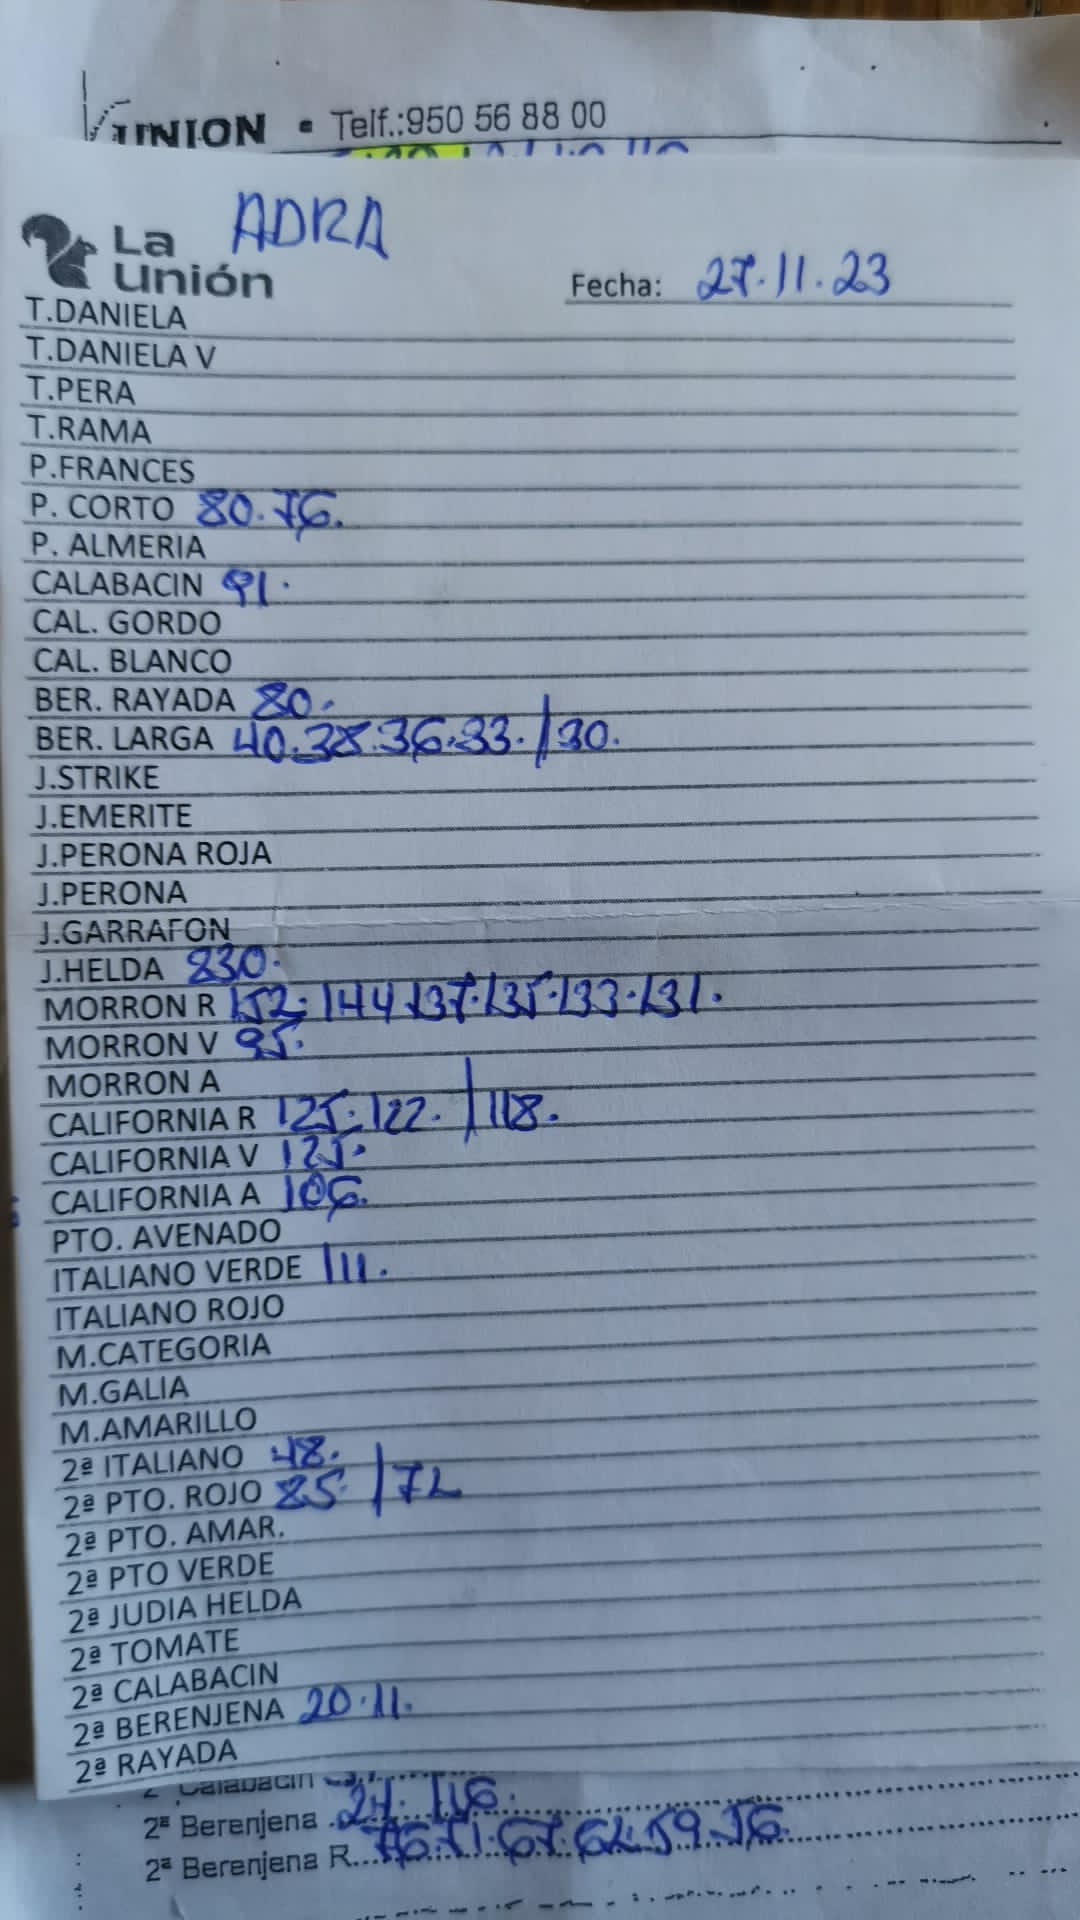 UNION • Telf.:950 56 88 00
La Unión ADRA
Fecha: 27.11.23
T.DANIELA
T.DANIELA V
T.PERA
T.RAMA
P.FRANCES
P. CORTO 80.76.
P. ALMERIA
CALABACIN 91.
CAL. GORDO
CAL. BLANCO
BER. RAYADA 80.
BER. LARGA 40.38.36.33./30.
J.STRIKE
J.EMERITE
J.PERONA ROJA
J.PERONA
J.GARRAFON
J.HELDA 830.
MORRON R 152.144.137.135.133.131.
MORRON V 95.
MORRON A
CALIFORNIA R 125.122./118.
CALIFORNIA V 125.
CALIFORNIA A 106.
PTO. AVENADO
ITALIANO VERDE 111.
ITALIANO ROJO
M.CATEGORIA
M.GALIA
M.AMARILLO
2ª ITALIANO 48.
2ª PTO. ROJO 85./72
2ª PTO. AMAR.
2ª PTO VERDE
2ª JUDIA HELDA
2ª TOMATE
2ª CALABACIN
2ª BERENJENA 20.11.
2ª RAYADA
2ª Calabacin
2ª Berenjena
2ª Berenjena R... 76.71.67.62.59.56.